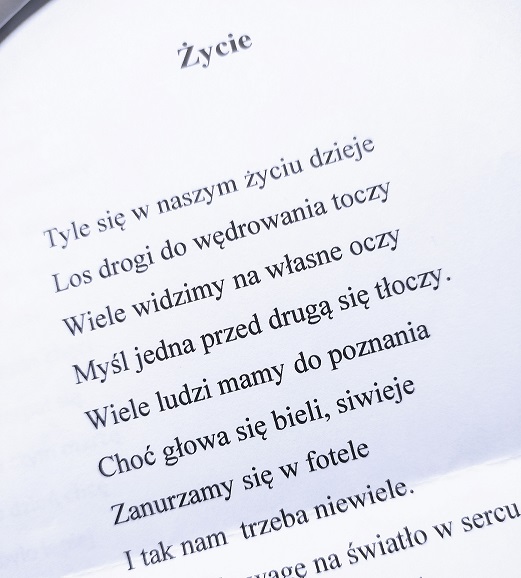 Życie
Tyle się w naszym życiu dzieje
Los drogi do wędrowania toczy
Wiele widzimy na własne oczy
Myśl jedna przed drugą się tłoczy.
Wiele ludzi mamy do poznania
Choć głowa się bieli, siwieje
Zanurzamy się w fotele
I tak nam trzeba niewiele.
na światło w sercu